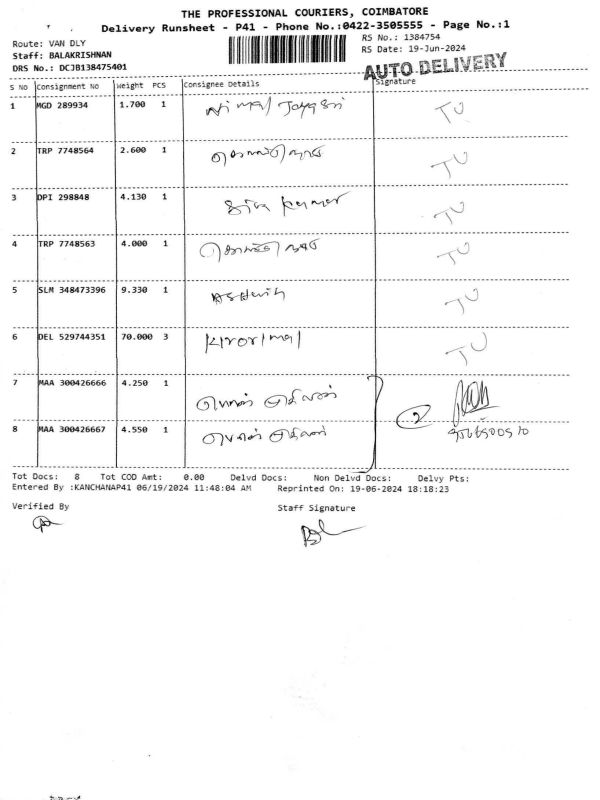 THE PROFESSIONAL COURIERS, COIMBATORE
Delivery Runsheet - P41 - Phone No.:0422-3505555 - Page No.:1
Route: VAN DLY
Staff: BALAKRISHNAN
DRS No.: DCJB138475401
RS No.: 1384754
RS Date: 19-Jun-2024
AUTO DELIVERY
S NO Consignment No Weight PCS Consignee Details Signature
1 MGD 289934 1.700 1 TU
2 TRP 7748564 2.600 1 TU
3 DPI 298848 4.130 1 Siva Kumar TU
4 TRP 7748563 4.000 1 TU
5 SLM 348473396 9.330 1 TU
6 DEL 529744351 70.000 3 Kirorimal TU
7 MAA 300426666 4.250 1
2
8 MAA 300426667 4.550 1
Tot Docs: 8 Tot COD Amt: 0.00 Delvd Docs: Non Delvd Docs: Delvy Pts:
Entered By :KANCHANAP41 06/19/2024 11:48:04 AM Reprinted On: 19-06-2024 18:18:23
Verified By Staff Signature